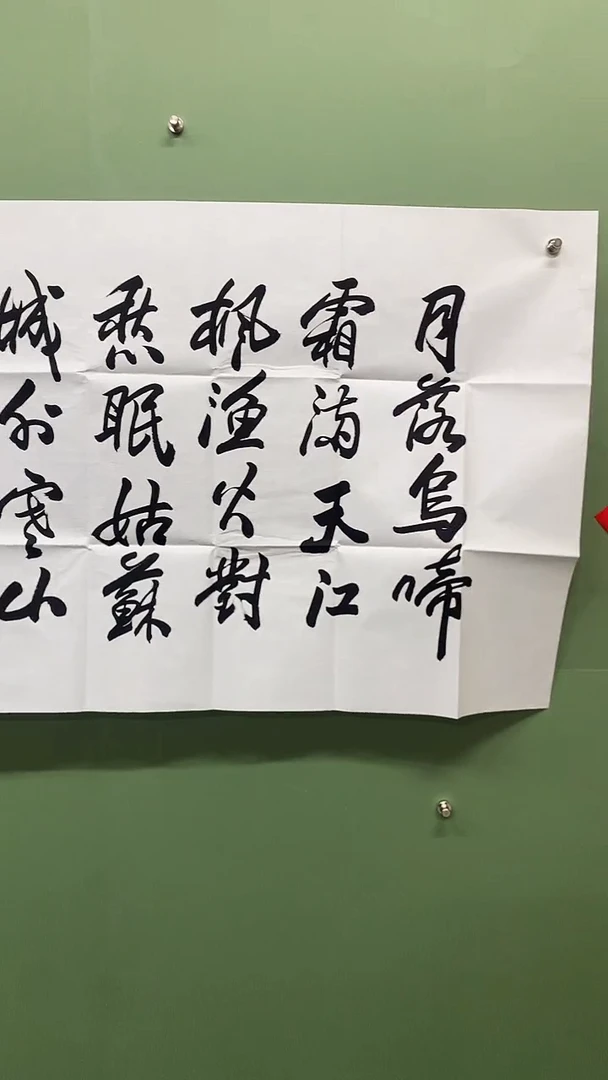 月落烏啼
霜满天江
楓漁火對
愁眠姑蘇
城外寒山